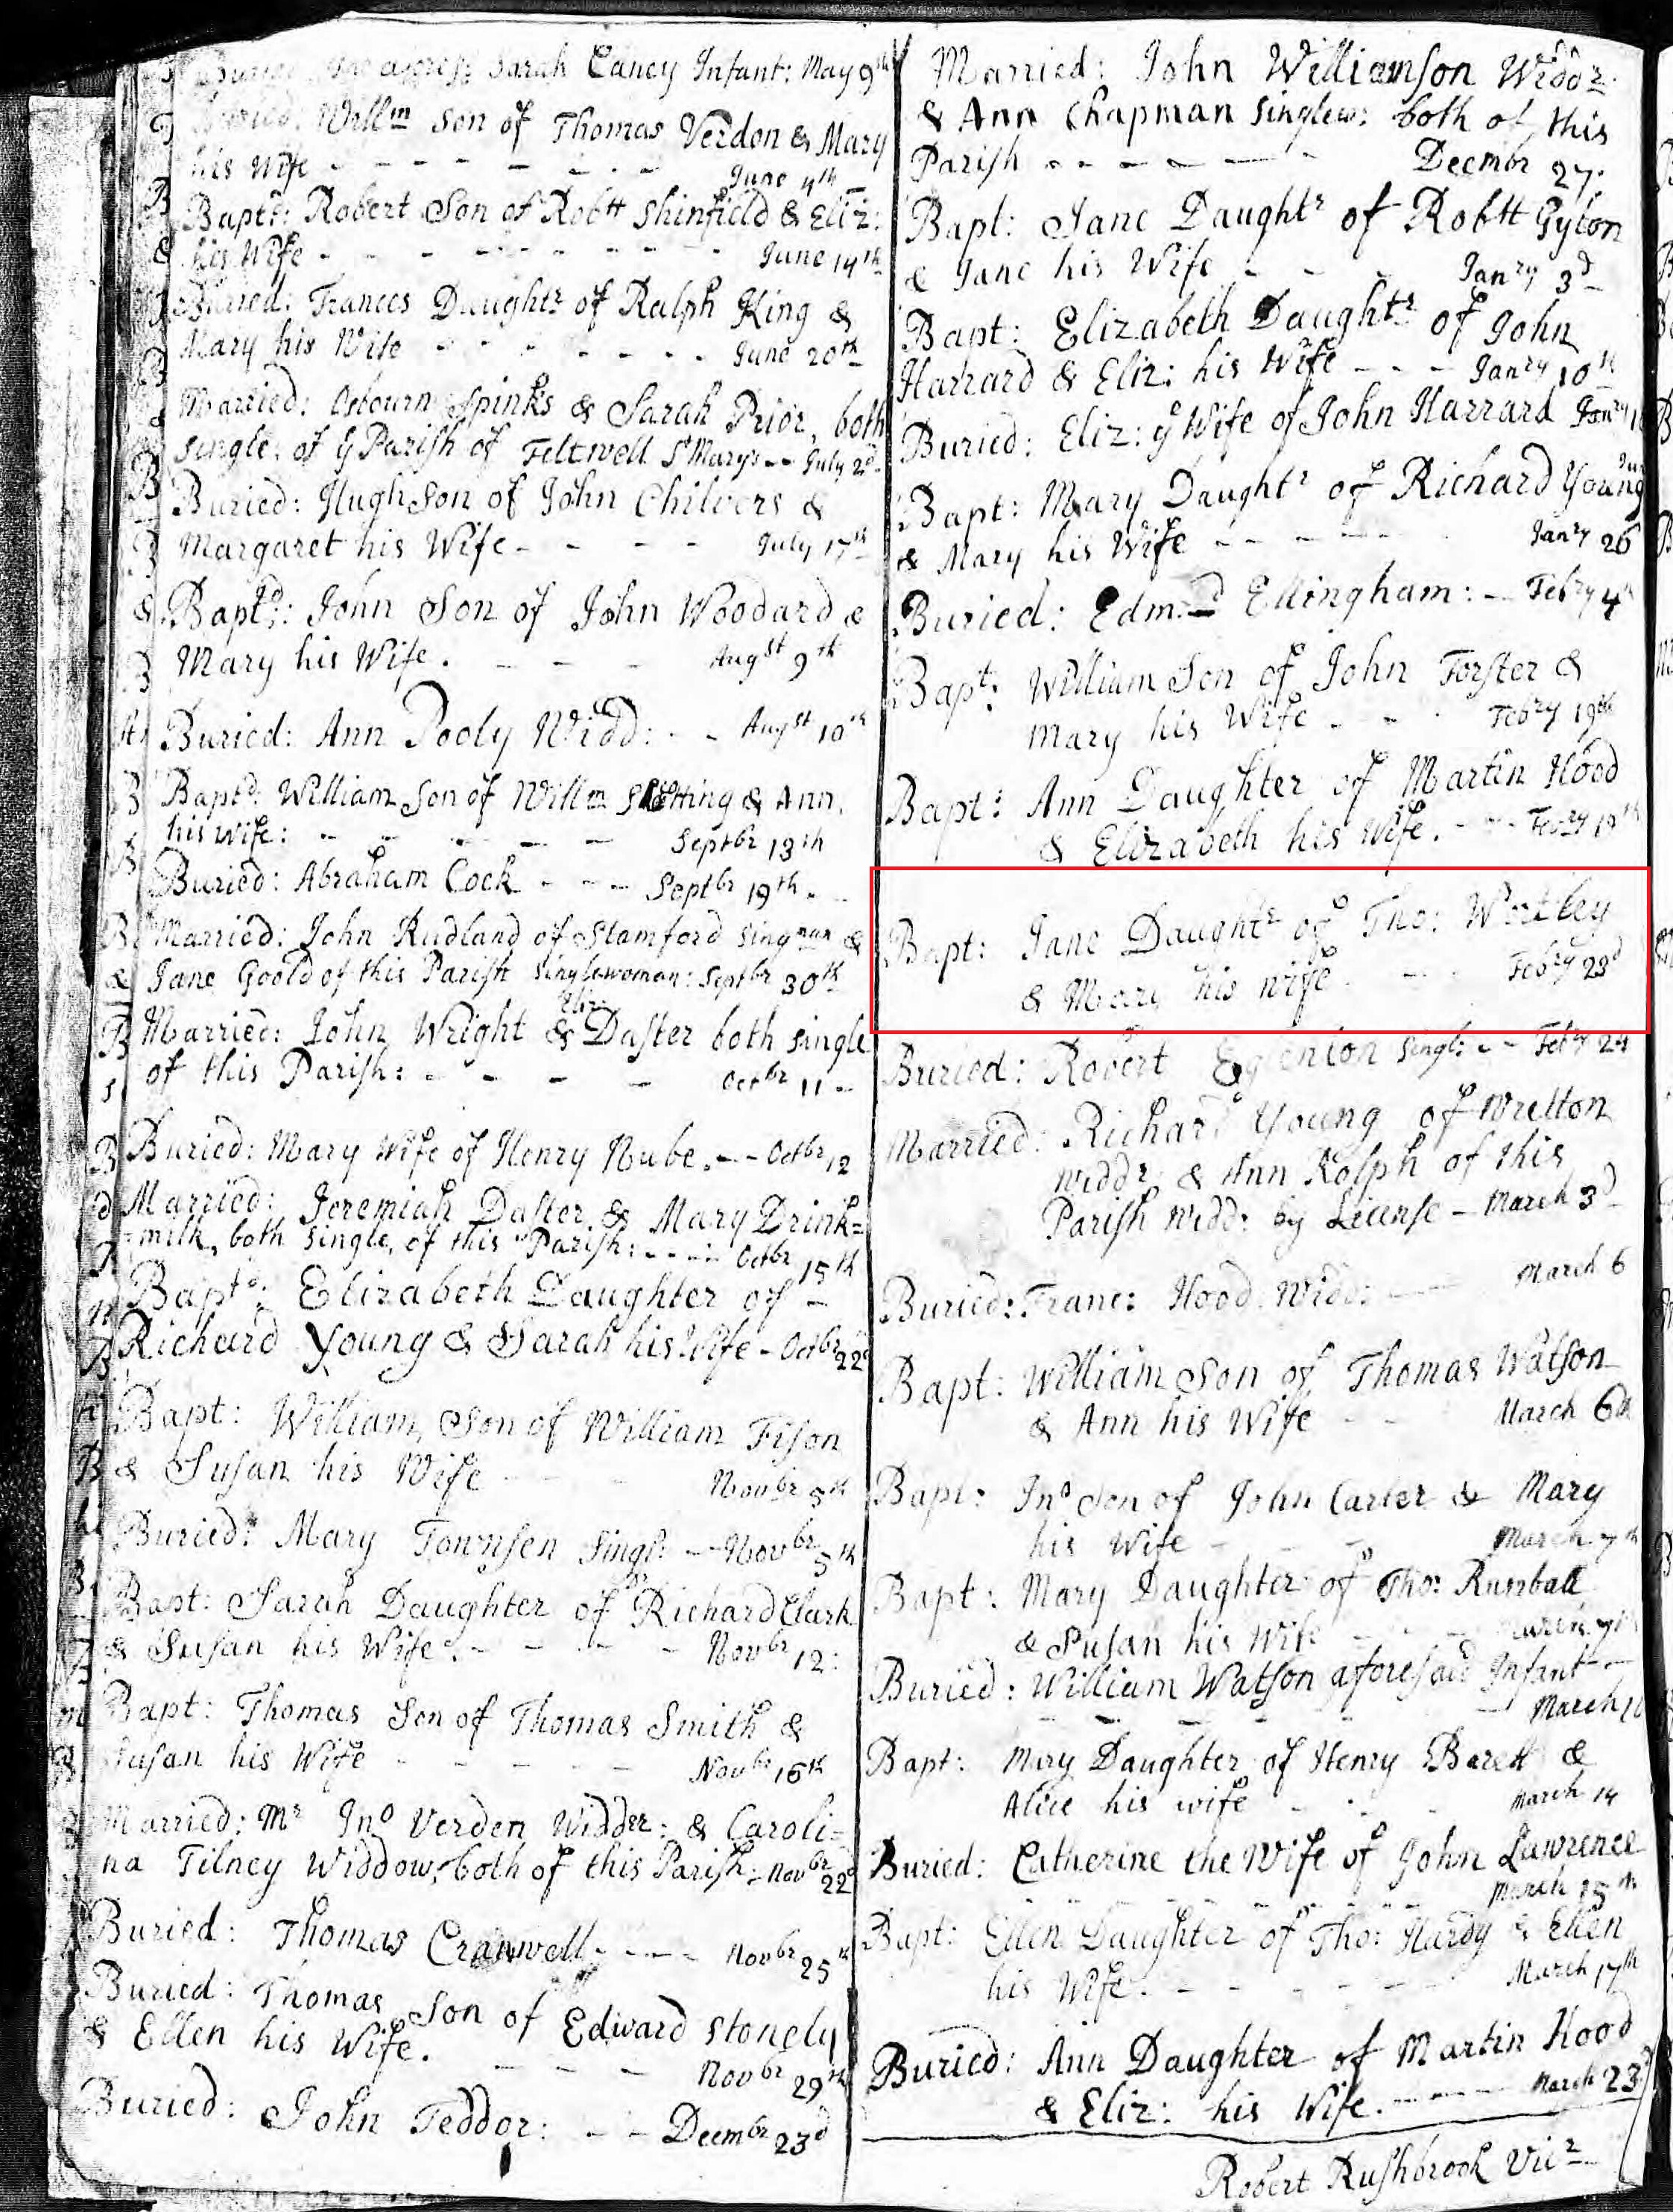 Sarah Caney Infant: May 9th
Buried: Willm Son of Thomas Verdon & Mary
his Wife - - - - - - - June 4th
Baptd: Robert Son of Robtt Shinfield & Eliz:
his Wife - - - - - - - - June 14th
Buried: Frances Daughtr of Ralph King &
Mary his Wife - - - - - - - June 20th
Married: Osbourn Spinks & Sarah Prior, both
single, of ye Parish of Feltwell St Mary's -- July 2d
Buried: Hugh Son of John Chilvers &
Margaret his Wife - - - - July 17th
Baptd: John Son of John Woodard &
Mary his Wife. - - - Augst 9th
Buried: Ann Pooly Widd: - - Augst 10th
Baptd: William Son of Willm & Ann
his Wife: - - - - - Septbr 13th
Buried: Abraham Cock - - - Septbr 19th
Married: John Rudland of Stamford singman &
Jane Goold of this Parish singlewoman: Septbr 30th
Married: John Wright & Eliz: Daster both single
of this Parish: - - - - Octbr 11 -
Buried: Mary Wife of Henry Nube. - - Octbr 12
Married: Jeremiah Daster, & Mary Drink=
milk, both single, of this Parish: - - - - Octbr 15th
Baptd: Elizabeth Daughter of -
Richard Young & Sarah his Wife - Octbr 22d
Bapt: William, Son of William Fison
& Susan his Wife - - - Novbr 5th
Buried: Mary Townsen Singl: -- Novbr 5th
Bapt: Sarah Daughter of Richard Clark
& Susan his Wife. - - - - Novbr 12:
Bapt: Thomas Son of Thomas Smith &
Susan his Wife - - - - - Novbr 16th
Married: Mr Jno Verden Widdr: & Caroli=
na Tilney Widdow, both of this Parish: Novbr 22d
Buried: Thomas Cranwell - - - - Novbr 25th
Buried: Thomas Son of Edward Stonely
& Ellen his Wife. - - - Novbr 29th
Buried: John Teddor: - - Decmbr 23d
Married: John Williamson Widdr.
& Ann Chapman Singlew: both of this
Parish - - - - - - Decmbr 27:
Bapt: Jane Daughtr of Robtt Gyton
& Jane his Wife - - - Janry 3d
Bapt: Elizabeth Daughtr of John
Harrard & Eliz: his Wife - - - Janry 10th
Buried: Eliz: ye Wife of John Harrard Janry
Bapt: Mary Daughtr of Richard Young
& Mary his Wife - - - - - Janry 26
Buried: Edmd Ellingham: - - Febry 4th
Bapt: William Son of John Forster &
Mary his Wife - - - Febry 19th
Bapt: Ann Daughter of Martin Hood
& Elizabeth his Wife. - - - Febry 19th
Bapt: Jane Daughtr of Tho: Wortley
& Mary his wife - - - Febry 23d
Buried: Robert singl: - - Febry 24
Married: Richard Young of Wretton
widdr & Ann Rolph of this
Parish widd: by License - March 3d
Buried: Franc: Hood Widd: - March 6
Bapt: William Son of Thomas Watson
& Ann his Wife - - March 6th
Bapt: Jno Son of John Carter & Mary
his Wife - - - March 7th
Bapt: Mary Daughter of Tho: Rumball
& Susan his Wife - - - March 7th
Buried: William Watson aforesaid Infant -
- - - - - - March
Bapt: Mary Daughter of Henry Barett &
Alice his wife - - - March 14
Buried: Catherine the Wife of John Lawrence
- - - - - - March 15th
Bapt: Ellen Daughter of Tho: Hardy & Ellen
his Wife. - - - - - - March 17th
Buried: Ann Daughter of Martin Hood
& Eliz: his Wife. - - - - March 23d
Robert Rushbrook Vicr